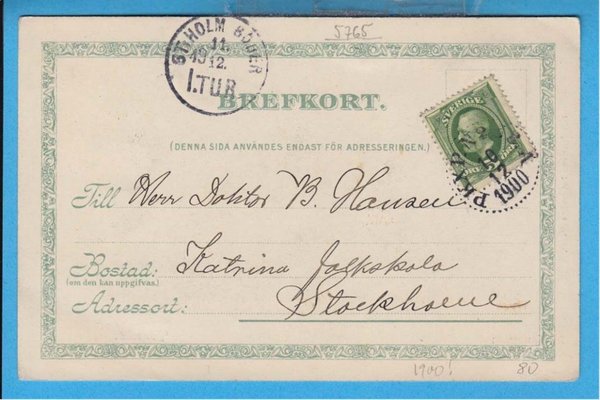 5765
ST.HOLM BÖRER
11.
19 12.
I.TUR
BREFKORT.
SVERIGE
PKXP. Nº
10
12
1900
(DENNA SIDA ANVÄNDES ENDAST FÖR ADRESSERINGEN.)
Till Herr Doktor B. Hansen
Bostad: Katrina folkskola
(om den kan uppgifvas.)
Adressort: Stockholm
1900!
80